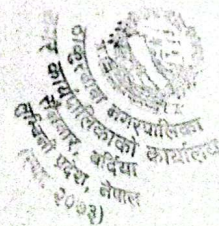 ठाकुरबाबा नगरपालिका
नगर कार्यपालिकाको कार्यालय
सैनवार, बर्दिया
लुम्बिनी प्रदेश, नेपाल
२०७३)